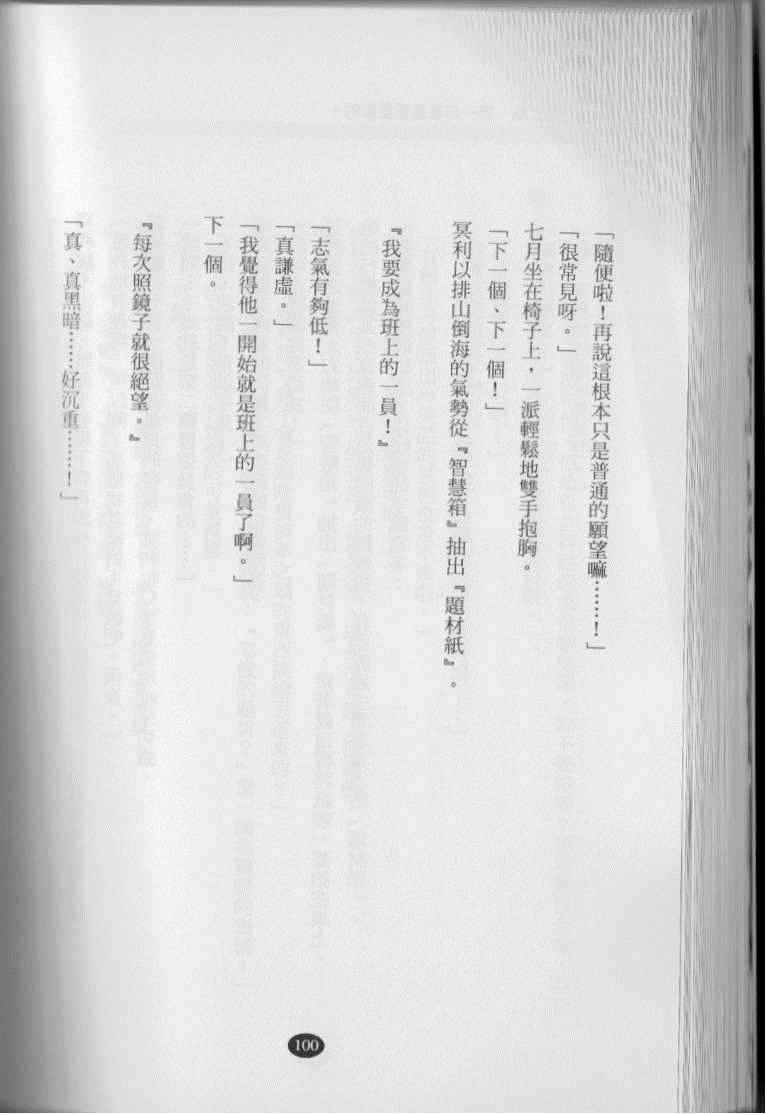 「隨便啦！再說這根本只是普通的願望嘛……！」
「很常見呀。」
七月坐在椅子上，一派輕鬆地雙手抱胸。
「下一個、下一個！」
冥利以排山倒海的氣勢從『智慧箱』抽出『題材紙』。
『我要成為班上的一員！』
「志氣有夠低！」
「真謙虛。」
「我覺得他一開始就是班上的一員了啊。」
下一個。
『每次照鏡子就很絕望。』
「真、真黑暗……好沉重……！」
100